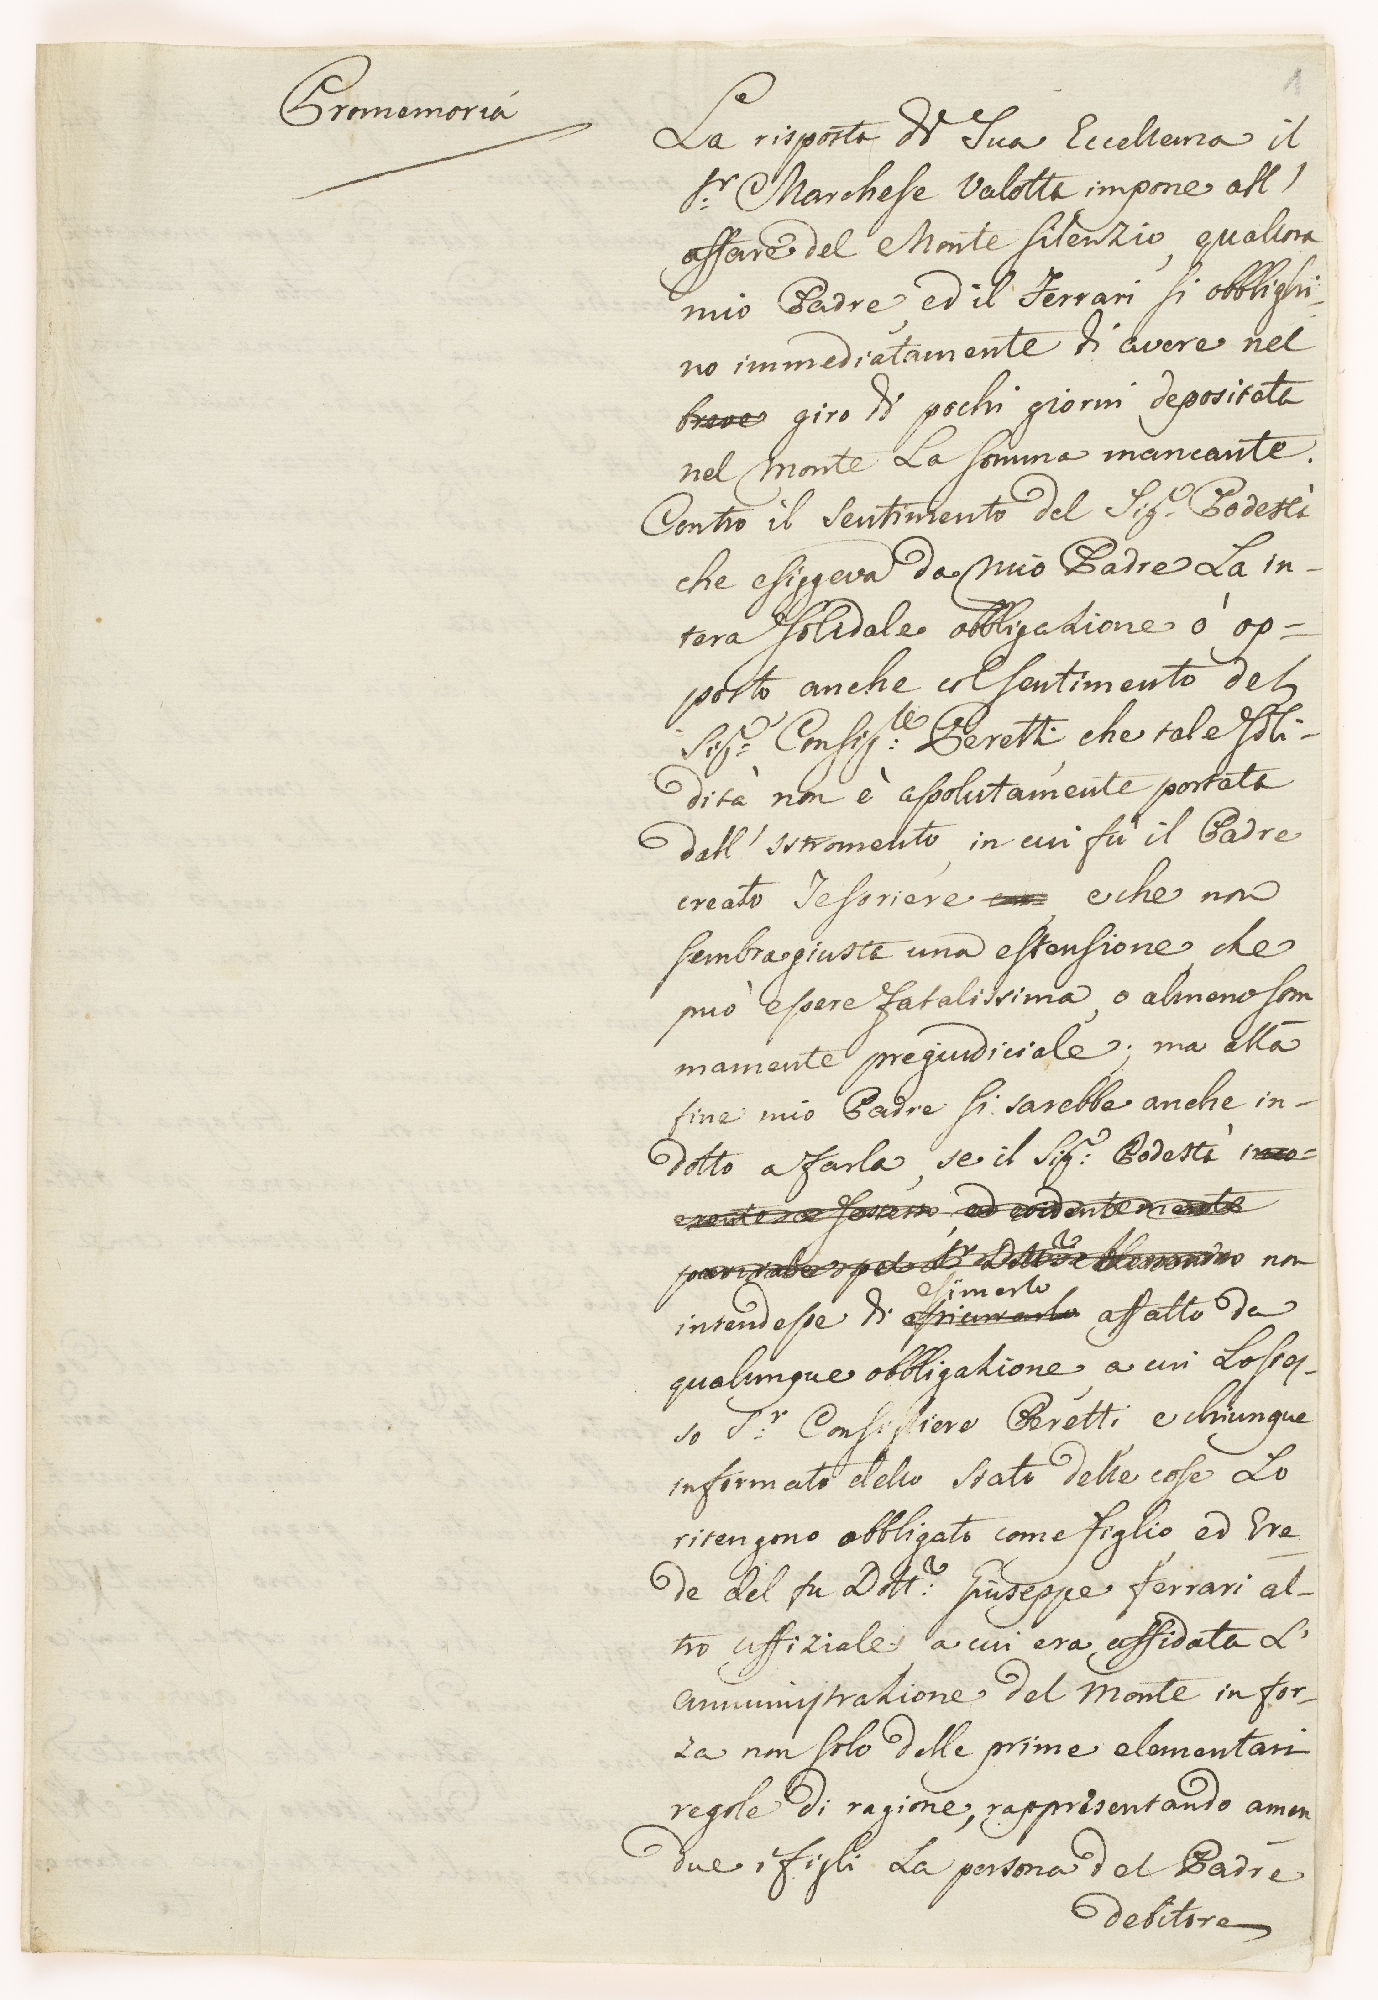 Promemoria
1
La risposta di Sua Eccellenza il
Sr: Marchese Valotta impone all'
affare del Monte silenzio, qualora
mio Padre, ed il Ferrari si obblighi-
no immediatamente di avere nel
breve giro di pochi giorni depositata
nel monte La somma mancante.
Contro il sentimento del Sigr: Podestà
che esiggeva da mio Padre La in-
tera solidale obbligazione ò op=
posto anche col sentimento del
Sigr: Consigle: Peretti, che tale soli-
dità non è assolutamente portata
dall' istromento, in cui fù il Padre
creato Tesoriere, e che non
sembra giusta una estensione, che
può essere fatalissima, o almeno som
mamente pregiudiciale; ma alla
fine mio Padre si sarebbe anche in-
dotto a farla, se il Sigr: Podestà
ed evidentemente
parziale pel Sr Dottore Alessandro non
intendesse di esimerlo affatto da
qualunque obbligazione, a cui Lostes-
so Sr: Consigliere Peretti e chiunque
informato dello stato delle cose Lo
ritengono obbligato come figlio, ed Ere
de del fu Dottr: Giuseppe Ferrari al-
tro uffiziale, a cui era affidata L'
amministrazione del Monte in for-
za non solo delle prime elementari
regole di ragione, rappresentando amen
due i figli La persona del Padre
debitore